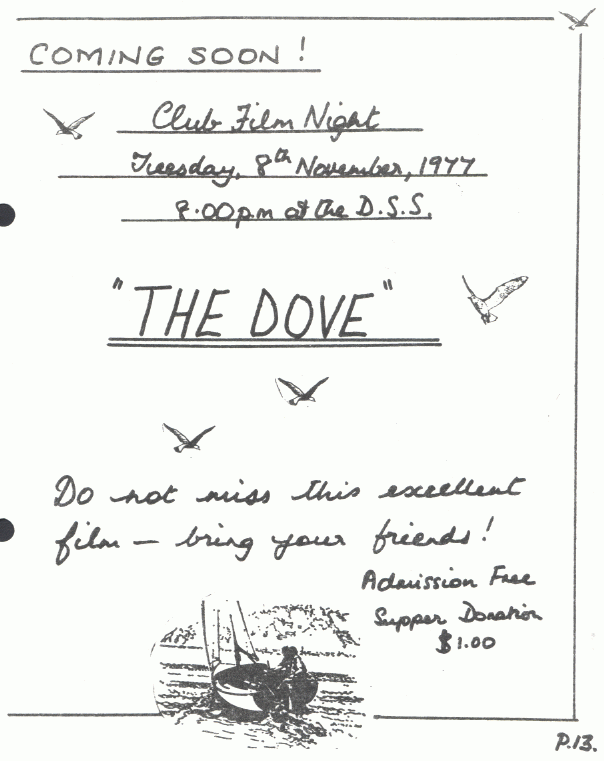 COMING SOON!
Club Film Night
Tuesday, 8th November, 1977
8.00pm at the D.S.S.
"THE DOVE"
Do not miss this excellent
film — bring your friends!
Admission Free
Supper Donation
$1.00
P.13.